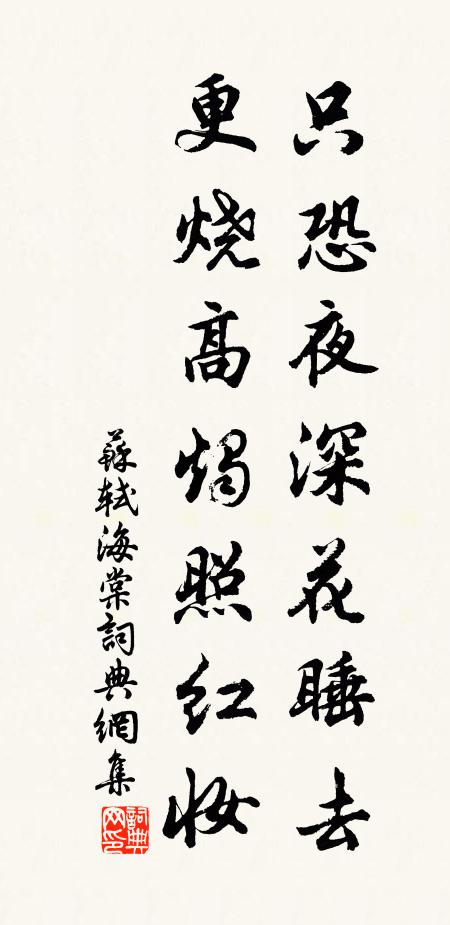 只恐夜深花睡去
更烧高烛照红妆
蘇軾海棠詞典網集
詞典网印